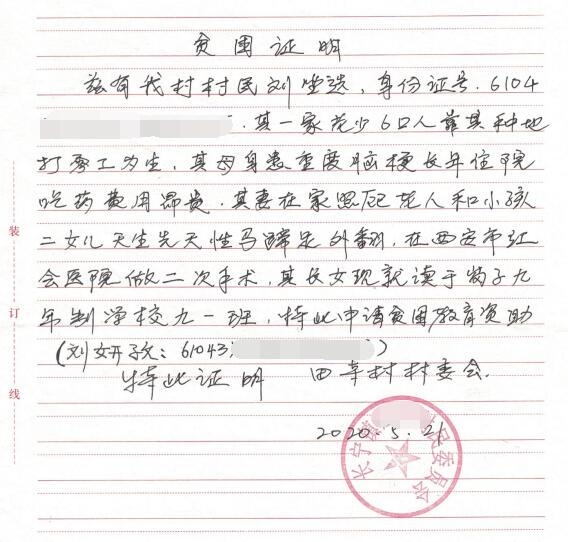 贫困证明
兹有我村村民刘坐选，身份证号：6104
，其一家老少6口人靠其种地
打零工为生，其母身患重度脑梗长年住院
吃药费用昂贵，其妻在家照应老人和小孩
二女儿天生先天性马蹄足外翻，在西安市红
会医院做二次手术，其长女现就读于
年制学校九一班，特此申请贫困教育资助
（刘妍孜：61043 ）
特此证明 村村委会
2020.5.21
长宁 委员会
装
订
线